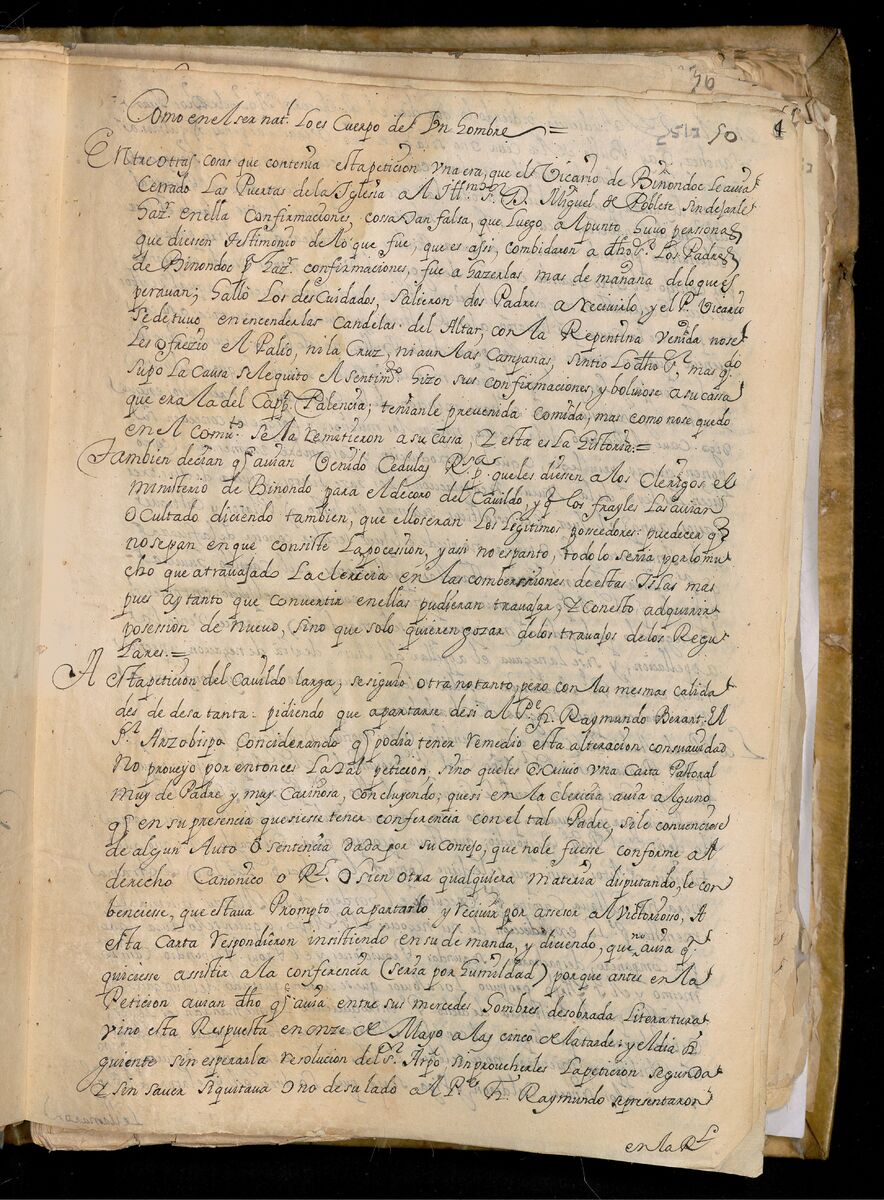 56
50
4
Como en el ser nat.l lo es Cuerpo de Vn hombre =
Entre otras cosas que contenia esta peticion vna era, que el Vicario de Binondoc le avia
Cerrado Las Puertas de la Iglesia a Al Ill.mo S.r D. Miguel de Poblete sin dejarle
haz.r en ella Confirmaciones, cossa tan falsa, que luego a punto huvo personas
que diessen testimonio de lo que fue, que es assi, combidaron a dho S.r Los Padres
de Binondoc p.a haz.r confirmaciones, fue a hazerlas mas de mañana de lo que es
peravan; hallò Los descuidados, salieron dos Padres a recivirlo, y el P.e Vicario
se detuvo en encender las Candelas del Altar, con la Repentina Venida no se
les ofrezio el Palio, ni la Cruz, ni aun las Campanas, sintio lo dho S.r mas q.do
supo La Causa se le quito el sentim.to hizo sus confirmaciones, y bolviose a su casa
que era la del Cap.n Palencia; tenianle prevenida Comida, mas como no se quedo
en el Com.to se la remitieron a su casa, Z esta es la historia: =
Tambien decian q.e avian Venido Cedulas R.s p.a que les diesen a los Clerigos el
ministerio de Binondo para el decoro del Cavildo, y q.e los frayles las avian
Ocultado diciendo tambien, que ellos eran Los Legitimos posseedores: puede cer q.e
no sepan en que consiste La pocession, y asi no espanto, todo lo seria por lo mu
cho que a travajado La clerecia en las combersiones de estas Islas mas
pues ay tanto que convertir en ellas pudieran travajar, Z con esto adquirir
posession de nuevo, sino que solo quieren gozar de los travajos de los Regu
Lares. =
A esta peticion del Cavildo larga, se siguio otra no tanto, pero con las mesmas calida
des de desatanta: pidiendo que apartarse de si al P.e Fr. Raymundo Berart: El
S.r Arzobispo Conciderando q.e podia tener remedio esta alteracion con suavidad
No proveyo por entonces La tal peticion sino que les escrivio vna Carta Pastoral
muy de Padre y muy Cariñosa, concluyendo; que si en la clerecia avia alguno
q.e en su presencia quesiesse tener conferencia con el tal Padre, si le convenciese
de algun Auto ò sentencia dada por su Consejo, que no le fuesse conforme al
derecho Canonico o R.l O si en otra qualquiera materia disputando, le con
benciesse, que estava Prompto a apartarlo y recivir por assesor al Victorioso, A
esta Carta respondieron insistiendo en su demanda, y diciendo, que no avia q.n
quiciesse assistir a la conferencia (seria por humildad) porque antes en la
Peticion avian dho q.e avia entre sus mercedes hombres de sobrada Literatura
vino esta Respuesta en onze de Mayo a las cinco de la tarde: y el dia si
guiente sin esperar la resolucion del S.r Arpo, sin proueherles La peticion segunda
Z sin saver si quitava o no de su lado a Al P.e Fr. Raymundo se presentaron
en la R.l